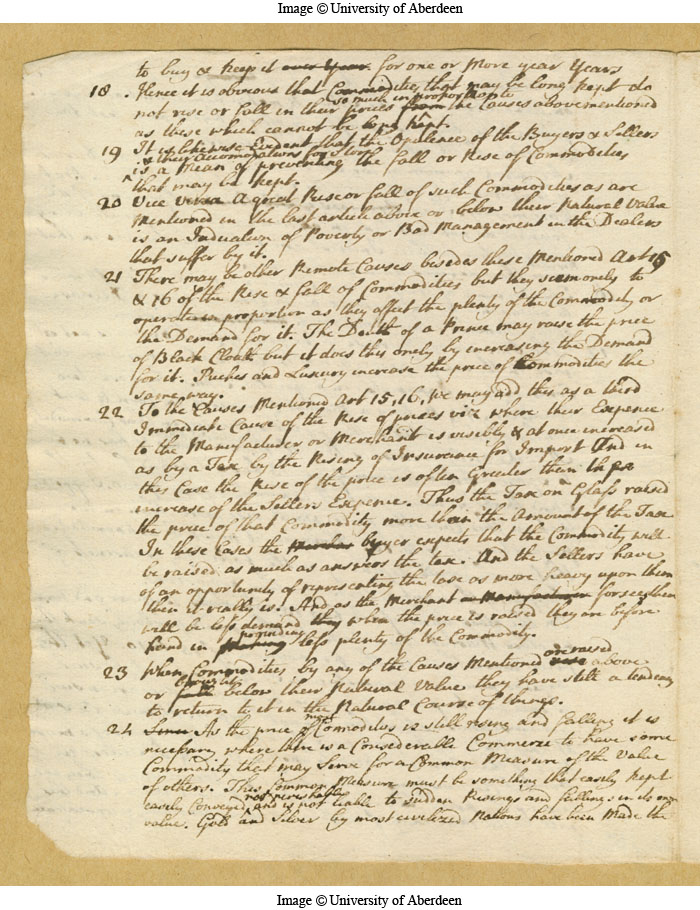 Image © University of Aberdeen
to buy & keep it over year for one or more year Years
18. Hence it is obvious that Commodities that may be long kept do
not rise or fall in their prices so much in proportion to from the Causes abovementioned
as these which cannot be long kept.
19 It is likewise Evident that the Opulence of the Buyers & Sellers
& their accomodations for Storing
is a Mean of preventing the fall or Rise of Commodities
that may be kept.
20 Vice versa A great Rise or fall of such Commodities as are
Mentioned in the last article above or below their Natural Value
is an Indication of Poverty or Bad Management in the Dealers
that suffer by it.
21 There may be other Remote Causes besides these Mentioned Art 15
& 16 of the Rise & fall of Commodities but they seem onely to
operate in proportion as they affect the plenty of the Commodity or
the Demand for it. The Death of a Prince may raise the price
of Black Cloath but it does this onely by increasing the Demand
for it. Riches and Luxury increase the price of Commodities the
same way.
22 To the Causes Mentioned Art 15, 16, we may add this as a third
Immediate Cause of the Rise of prices viz where their Expence
to the Manufacturer or Merchant is visibly & at once increased
as by a Tax by the Rising of Insurance for Import And in
this Case the Rise of the price is often Greater then the
increase of the Sellers Expence. Thus the Tax on Glass raised
the price of that Commodity more than the Amount of the Tax
In these Cases the buyer expects that the Commodity will
be raised as much as answers the tax. And the Sellers have
of an opportunity of representing the tax as more heavy upon them
then it really is. And as the Merchant or Manufacturer foresees there
will be less demand when the price is raised they are before
hand in providing less plenty of the Commodity.
23 When Commodities by any of the Causes Mentioned are raised above
or brought below their Natural Value they have still a tendency
to return to it in the Natural Course of things.
24 Since As the price of most Comodities is still rising and falling it is
necessary where there is a Considerable Commerce to have some
Commodity that may Serve for a Common Measure of the Value
of others. This Common Measure must be something that easily kept
easily Conveyed not perishable and is not liable to sudden Risings and fallings in its own
value. Gold and Silver by most civilized Nations have been Made the
Image © University of Aberdeen